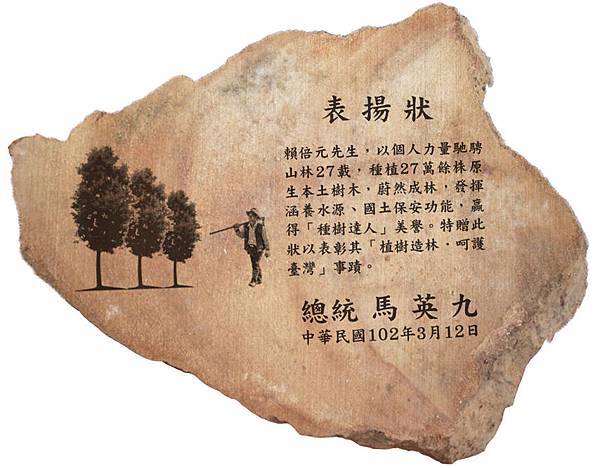 表揚狀
賴倍元先生，以個人力量馳騁
山林27載，種植27萬餘株原
生本土樹木，蔚然成林，發揮
涵養水源、國土保安功能，贏
得「種樹達人」美譽。特贈此
狀以表彰其「植樹造林，呵護
臺灣」事蹟。
總統 馬英九
中華民國102年3月12日